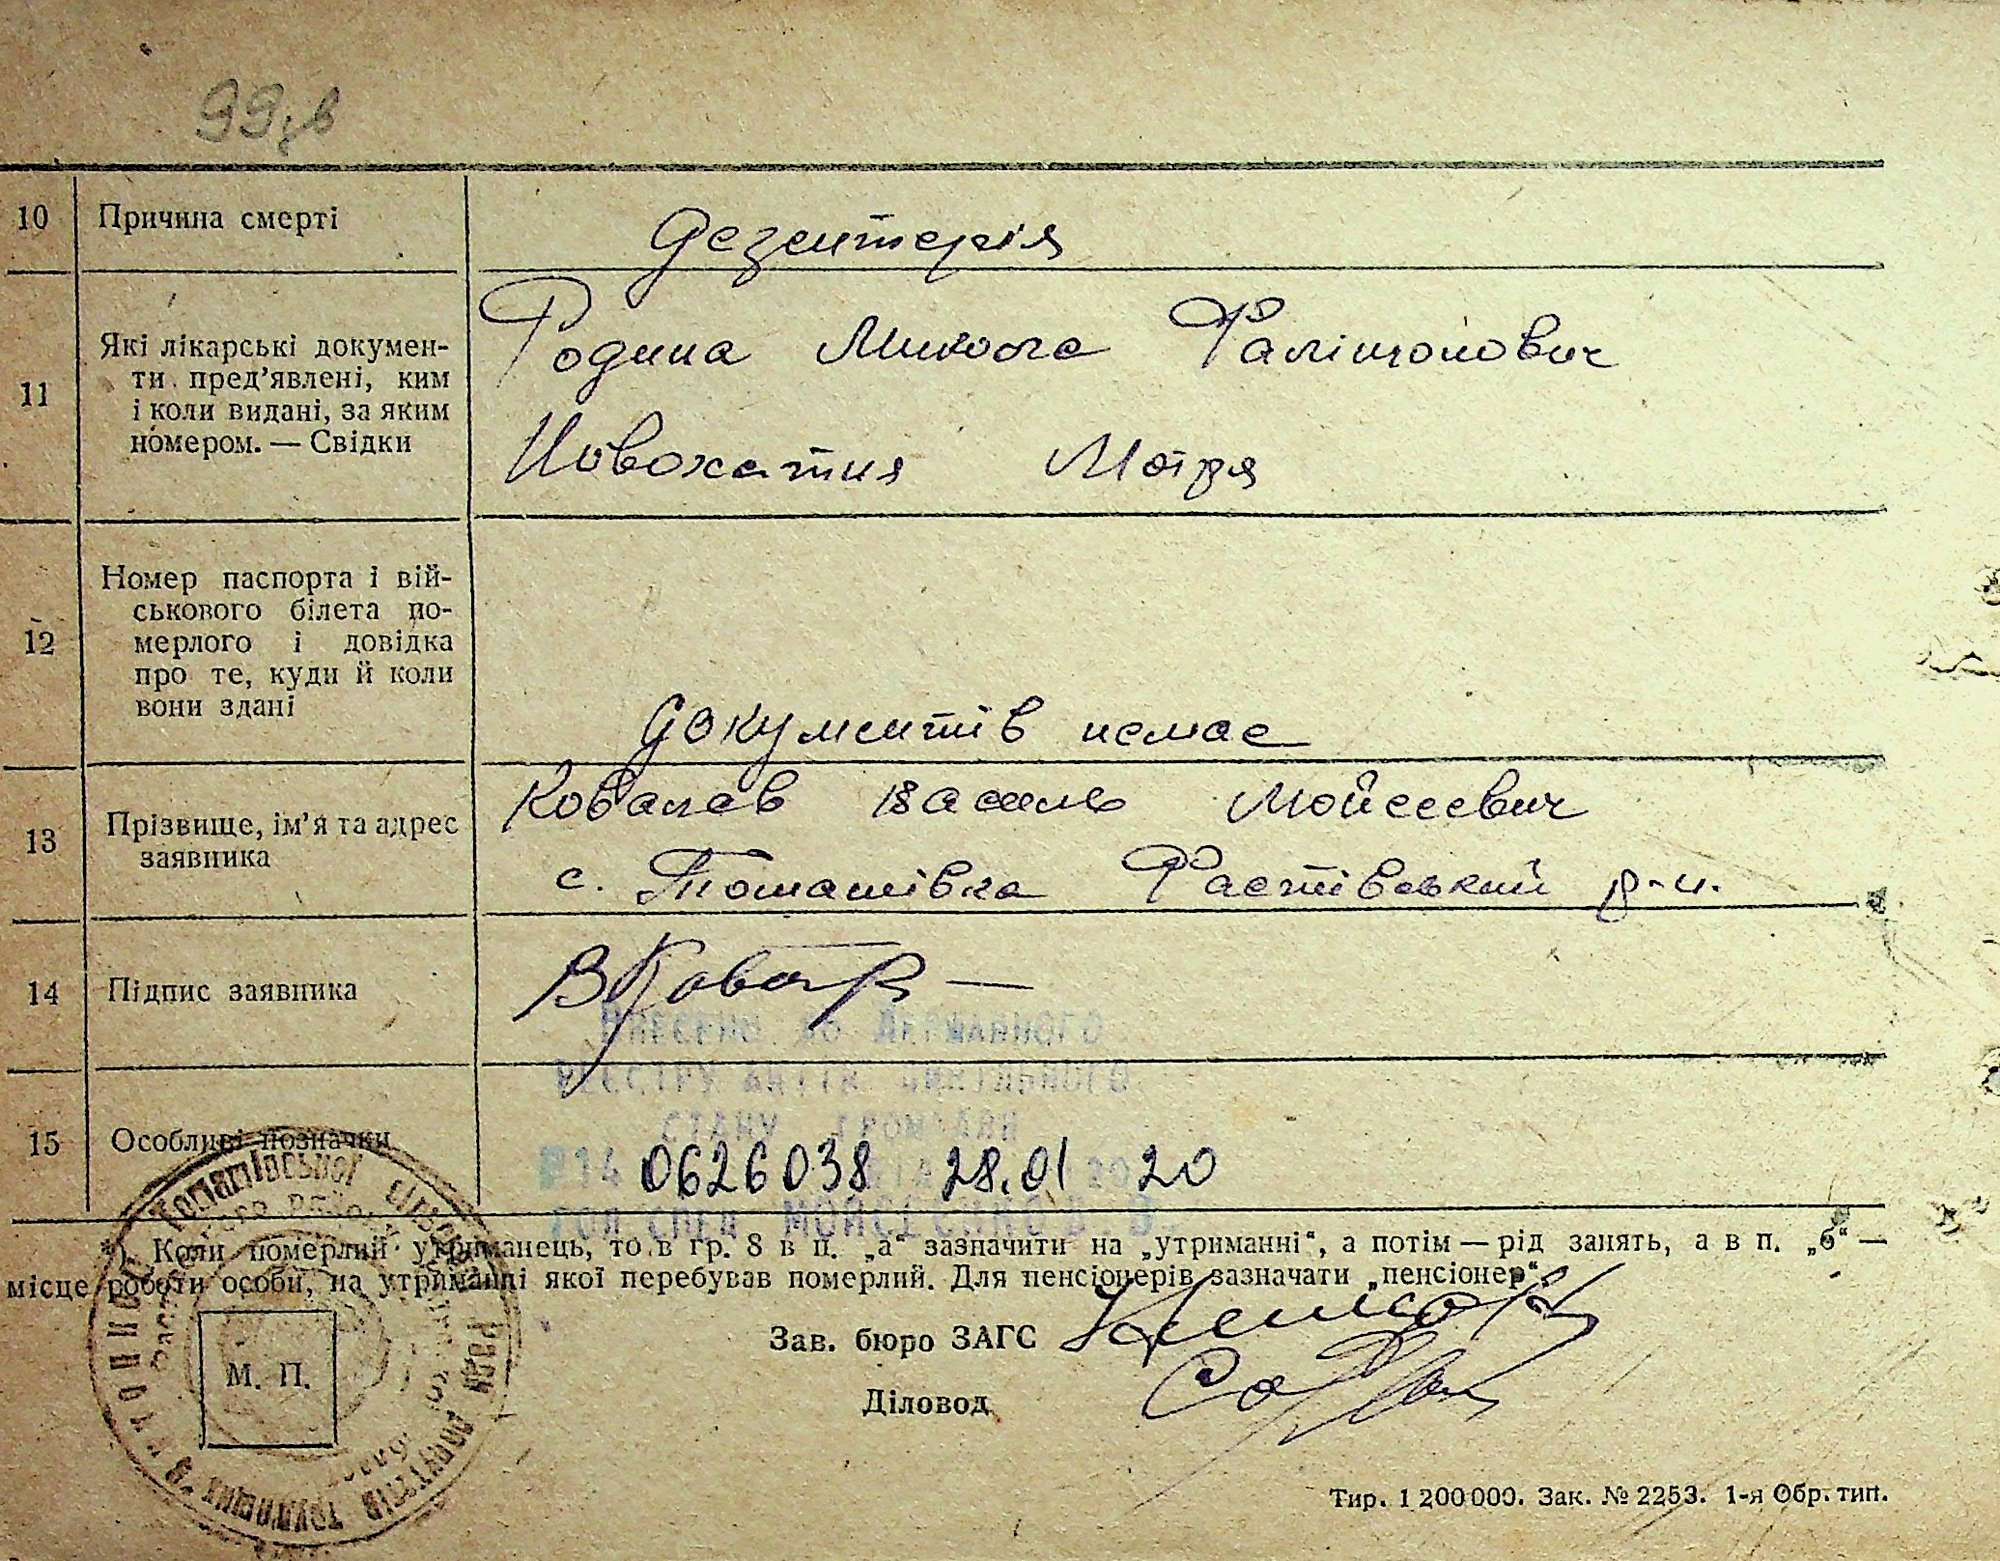 99
10 Причина смерті
Дезентерія
11 Які лікарські докумен-
ти пред'явлені, ким
і коли видані, за яким
номером. — Свідки
Родина Микола
Новохатня Мотря
12 Номер паспорта і вій-
ськового білета по-
мерлого і довідка
про те, куди й коли
вони здані
Документів немає
13 Прізвище, ім'я та адрес
заявника
Ковалев Василь Мойсеевич
с. Томашівка Фастівський р-н.
14 Підпис заявника
15 Особливі позначки
Внесено до Державного
реєстру актів цивільного
стану громадян
0626038 28.01 20
гол спец Мойсеєнко
*) Коли померлий утриманець, то в гр. 8 в п. „а“ зазначити на „утриманні“, а потім — рід занять, а в п. „б“ —
місце роботи особи, на утриманні якої перебував померлий. Для пенсіонерів зазначати „пенсіонер“.
Зав. бюро ЗАГС
Діловод
М. П.
Томашівської
ради депутатів трудящих
Тир. 1 200 000. Зак. № 2253. 1-я Обр. тип.